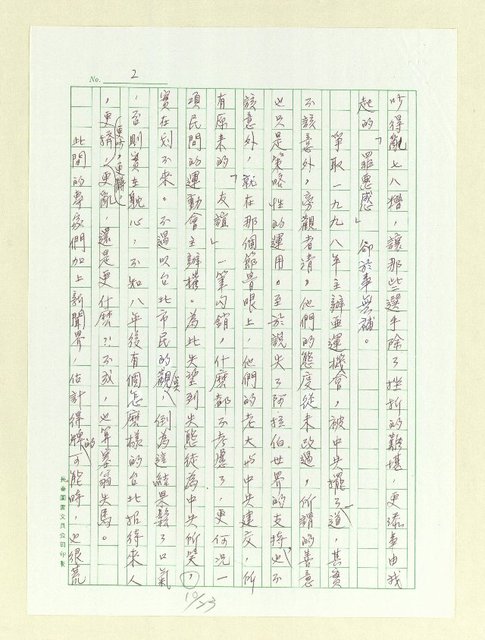 No. 2
吵得亂七八糟，讓那些選手除了挫折的難堪，更添無由我
起的「罪惡感」卻於事無補。
爭取一九九八年主辦亞運機會，被中共擺了一道，其實
不該意外，旁觀者清，他們的態度從未改過，所謂的善意
也只是策略性的運用。至於說失了阿拉伯世界的支持，也不
該意外，就在那個節骨眼上，他們的老大與中共建交，所
有原來的「友誼」一筆勾銷，什麼都不考慮了，更何況一
項民間的運動會主辦權。為此失望到失態徒為中共所笑，
實在划不來。不過以台北市民的觀點，倒為這結果鬆了口氣
，否則實在耽心，不知八年後有個怎麼樣的台北招得來人
，更擠，更亂，還是更什麼？不成，也算塞翁失馬。
更吵，更髒，
此間的專家們加上新聞界，估計得牌的可能時，也很荒
10/23